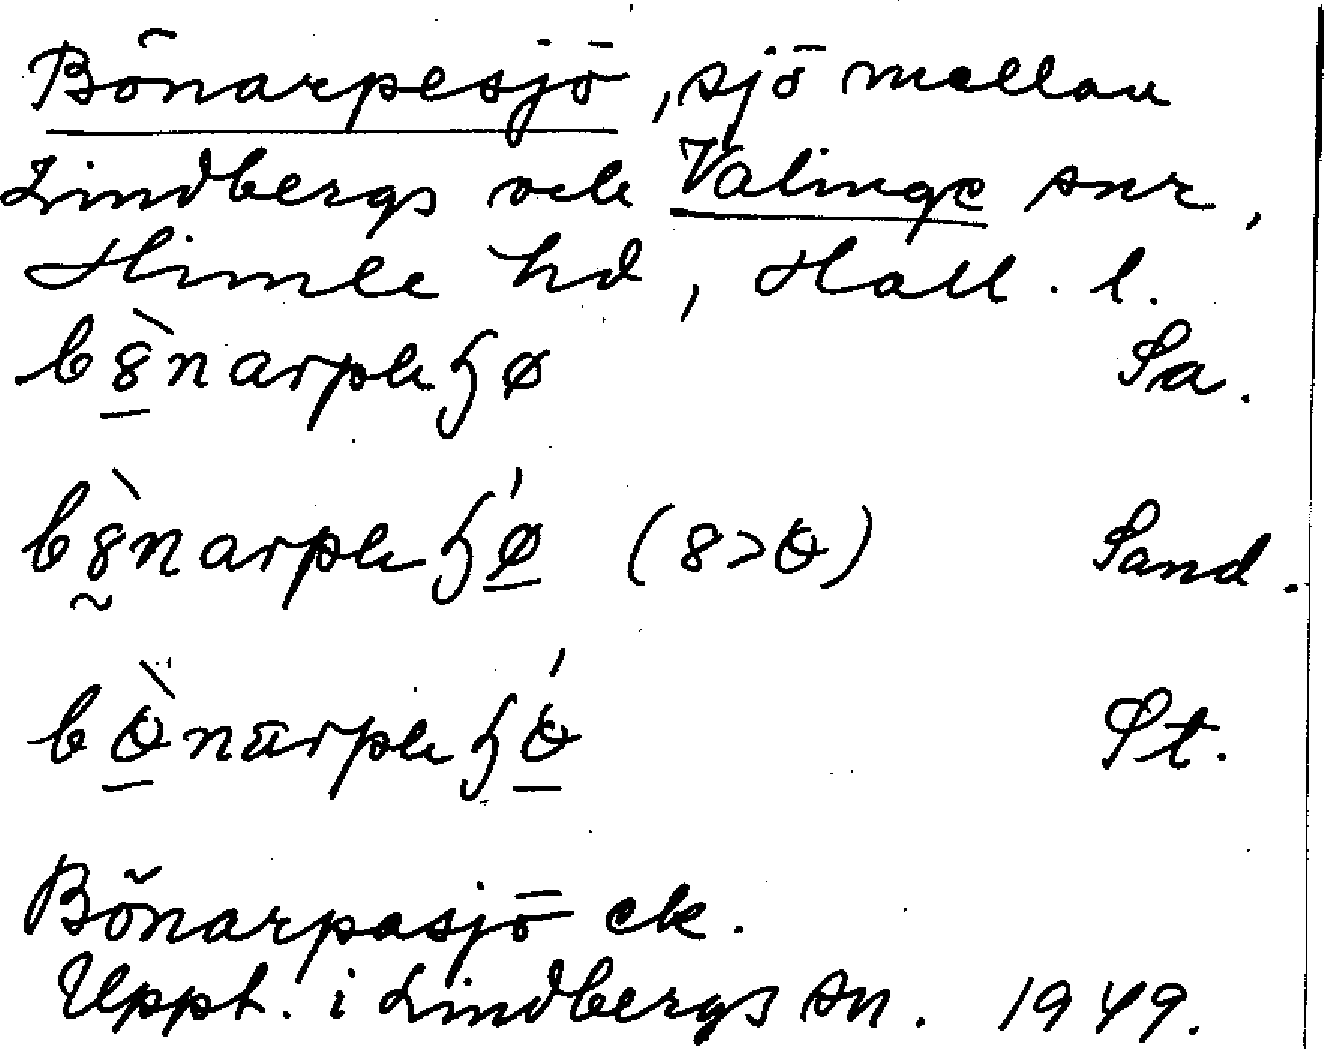 Bönarpesjö, sjö mellan
Lindbergs och Valinge snr,
Himle hd, Hall. l.
Sa.
(8>ɵ) Sand.
St.
Bönarpasjö ek.
Uppt. i Lindbergs sn. 1949.